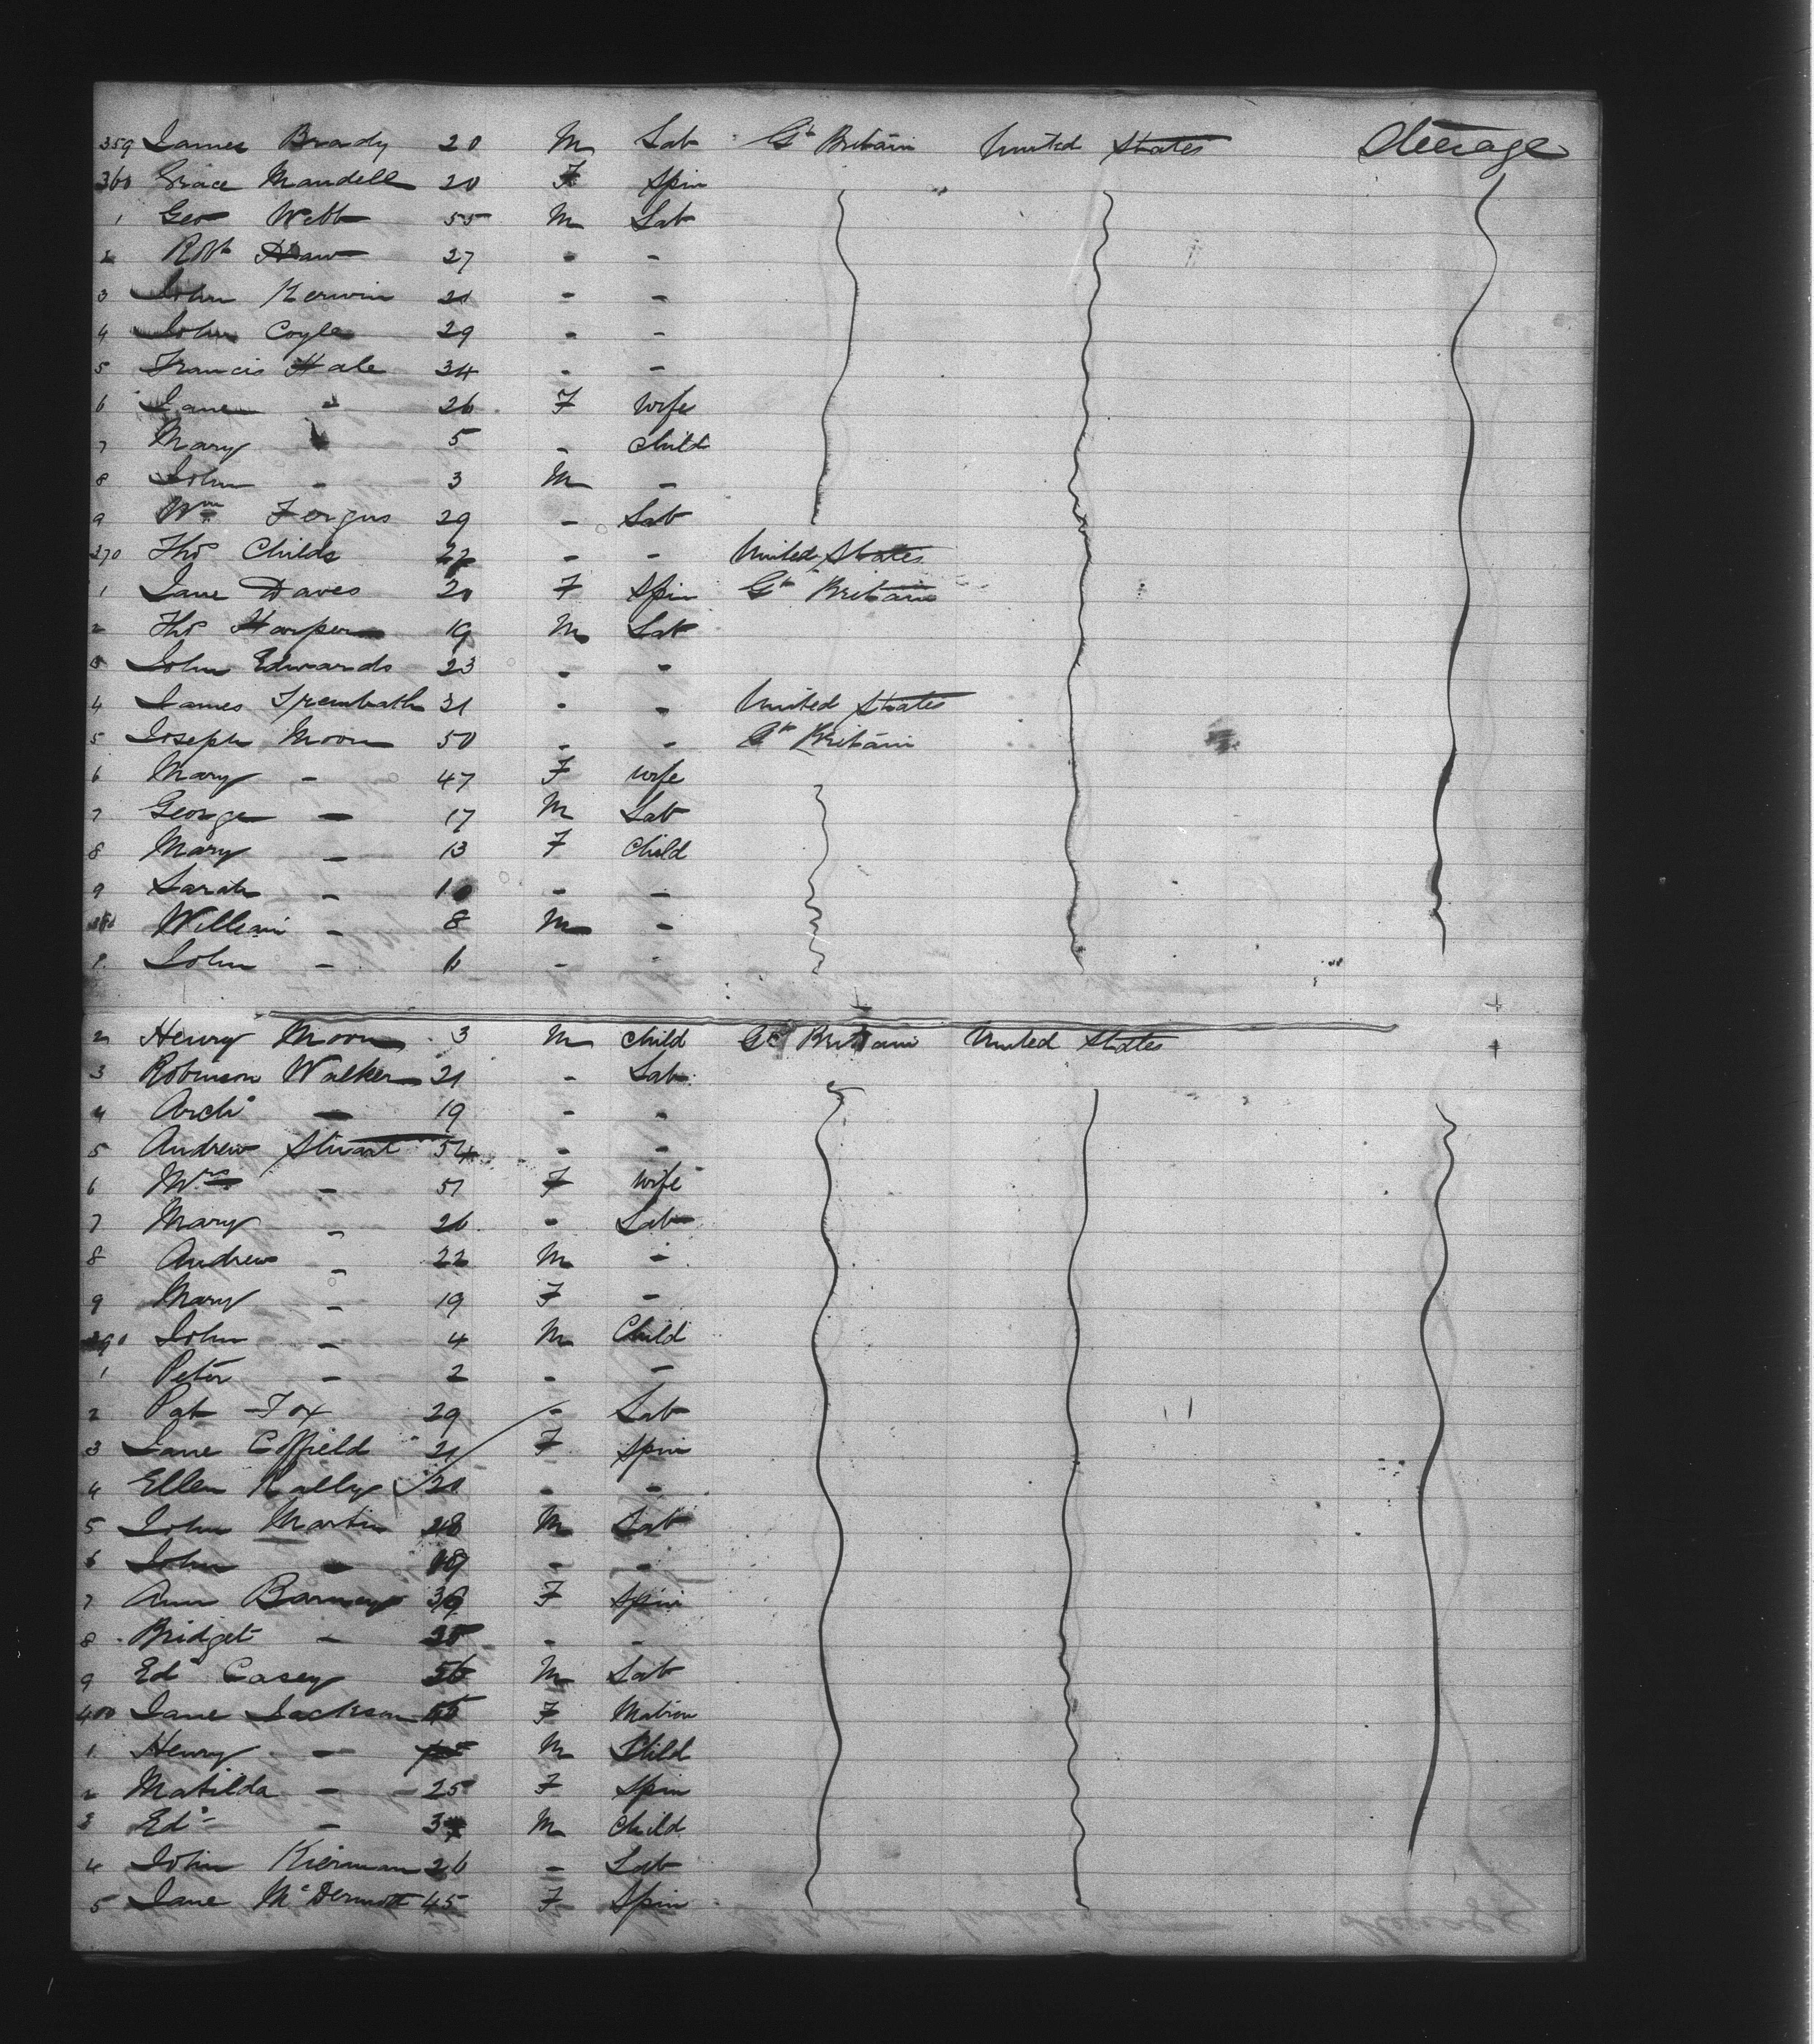 359 James Brady 20 M Lab Gt Britain United States Steerage
360 Grace Mandell 20 F Spin
1 Geo Webb 55 M Lab
2 Robt Haw 27 - -
3 John Kerwin 21 - -
4 John Coyle 29 - -
5 Francis Hale 34 - -
6 Jane " 26 F Wife
7 Mary 5 - Child
8 John - 3 M -
9 Wm Fergus 29 - Lab
370 Thos Childs 22 - - United States
1 Jane Daves 20 F Spin Gt Britain
2 Thos Harper 19 M Lab
3 John Edwards 23 - -
4 James Trembath 21 - - United States
5 Joseph Moon 50 - - Gt Britain
6 Mary - 47 F Wife
7 George - 17 M Lab
8 Mary - 13 F Child
9 Sarah - 10 - -
380 William - 8 M -
1 John - 6 - -
2 Henry Moon 3 M Child Gt Britain United States
3 Robinson Walker 21 - Lab
4 Archd - 19 - -
5 Andrew Stuart 54 - -
6 Mrs - 51 F Wife
7 Mary - 26 - Lab
8 Andrew - 22 M -
9 Mary - 19 F -
390 John - 4 M Child
1 Peter - 2 - -
2 Pat Fox 29 - Lab
3 Jane Coffield 21 F Spin
4 Ellen Kally 20 - -
5 John Martin M Lab
6 John - - -
7 Ann Barney F Spin
8 Bridget - - -
9 Ed Casey 56 M Lab
400 Jane Jackson F Matron
1 Henry - M Child
2 Matilda - 25 F Spin
3 Ed - M Child
4 John Kiernan 26 - Lab
5 Jane McDermott 45 F Spin